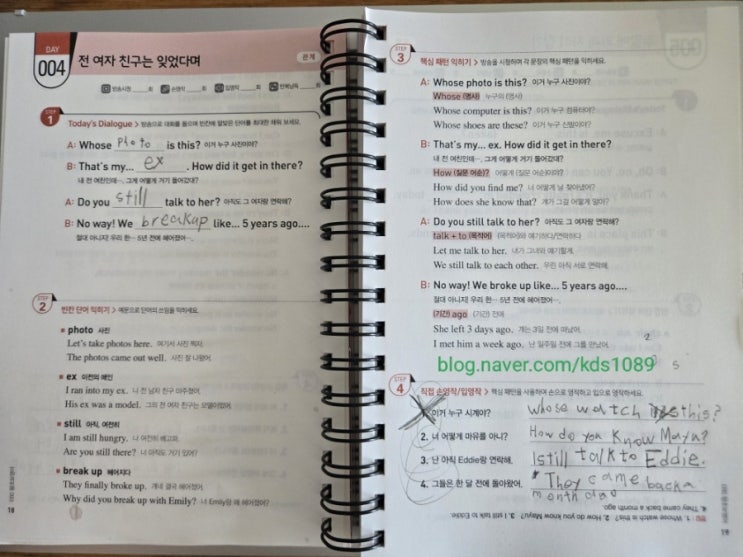 DAY
004
전 여자 친구는 잊었다며
관계
방송시청 ___회
손영작 ___회
입영작 ___회
반복낭독 ___회
STEP 1
Today's Dialogue > 방송으로 대화를 들으며 빈칸에 알맞은 단어를 최대한 채워 보세요.
A: Whose photo is this? 이거 누구 사진이야?
B: That's my... ex. How did it get in there?
내 전 여친인데…. 그게 어떻게 거기 들어갔대?
A: Do you still talk to her? 아직도 그 여자랑 연락해?
B: No way! We breakup like... 5 years ago....
절대 아니지! 우리 한… 5년 전에 헤어졌어….
STEP 2
빈칸 단어 익히기 > 예문으로 단어의 쓰임을 익히세요.
photo 사진
Let's take photos here. 여기서 사진 찍자.
The photos came out well. 사진 잘 나왔어.
ex 이전의 애인
I ran into my ex. 나 전 남자 친구 마주쳤어.
His ex was a model. 그의 전 여자 친구는 모델이었어.
still 아직, 여전히
I am still hungry. 나 여전히 배고파.
Are you still there? 너 아직도 거기 있어?
break up 헤어지다
They finally broke up. 걔네 결국 헤어졌어.
Why did you break up with Emily? 너 Emily랑 왜 헤어졌어?
18
STEP 3
핵심 패턴 익히기 > 방송을 시청하며 각 문장의 핵심 패턴을 익히세요.
A: Whose photo is this? 이거 누구 사진이야?
Whose (명사) 누구의 (명사)
Whose computer is this? 이거 누구 컴퓨터야?
Whose shoes are these? 이거 누구 신발이야?
B: That's my... ex. How did it get in there?
내 전 여친인데…. 그게 어떻게 거기 들어갔대?
How (질문 어순)? 어떻게 (질문 어순)이야?
How did you find me? 너 어떻게 날 찾아냈어?
How does she know that? 걔가 그걸 어떻게 알아?
A: Do you still talk to her? 아직도 그 여자랑 연락해?
talk + to (목적어) (목적어)와 얘기하다/연락하다
Let me talk to her. 내가 그녀와 얘기할게.
We still talk to each other. 우린 아직 서로 연락해.
B: No way! We broke up like... 5 years ago....
절대 아니지! 우리 한… 5년 전에 헤어졌어….
(기간) ago (기간) 전에
She left 3 days ago. 걔는 3일 전에 떠났어.
I met him a week ago. 난 일주일 전에 그를 만났어.
2
5
blog.naver.com/kds1089
STEP 4
직접 손영작/입영작 > 핵심 패턴을 사용하여 손으로 영작하고 입으로 영작하세요.
1. 이거 누구 시계야? whose watch is this?
2. 너 어떻게 마유를 아니? How do you know Mayu?
3. 난 아직 Eddie랑 연락해. I still talk to Eddie.
4. 그들은 한 달 전에 돌아왔어. They came back a
month ago
1. Whose watch is this? 2. How do you know Mayu? 3. I still talk to Eddie.
4. They came back a month ago.